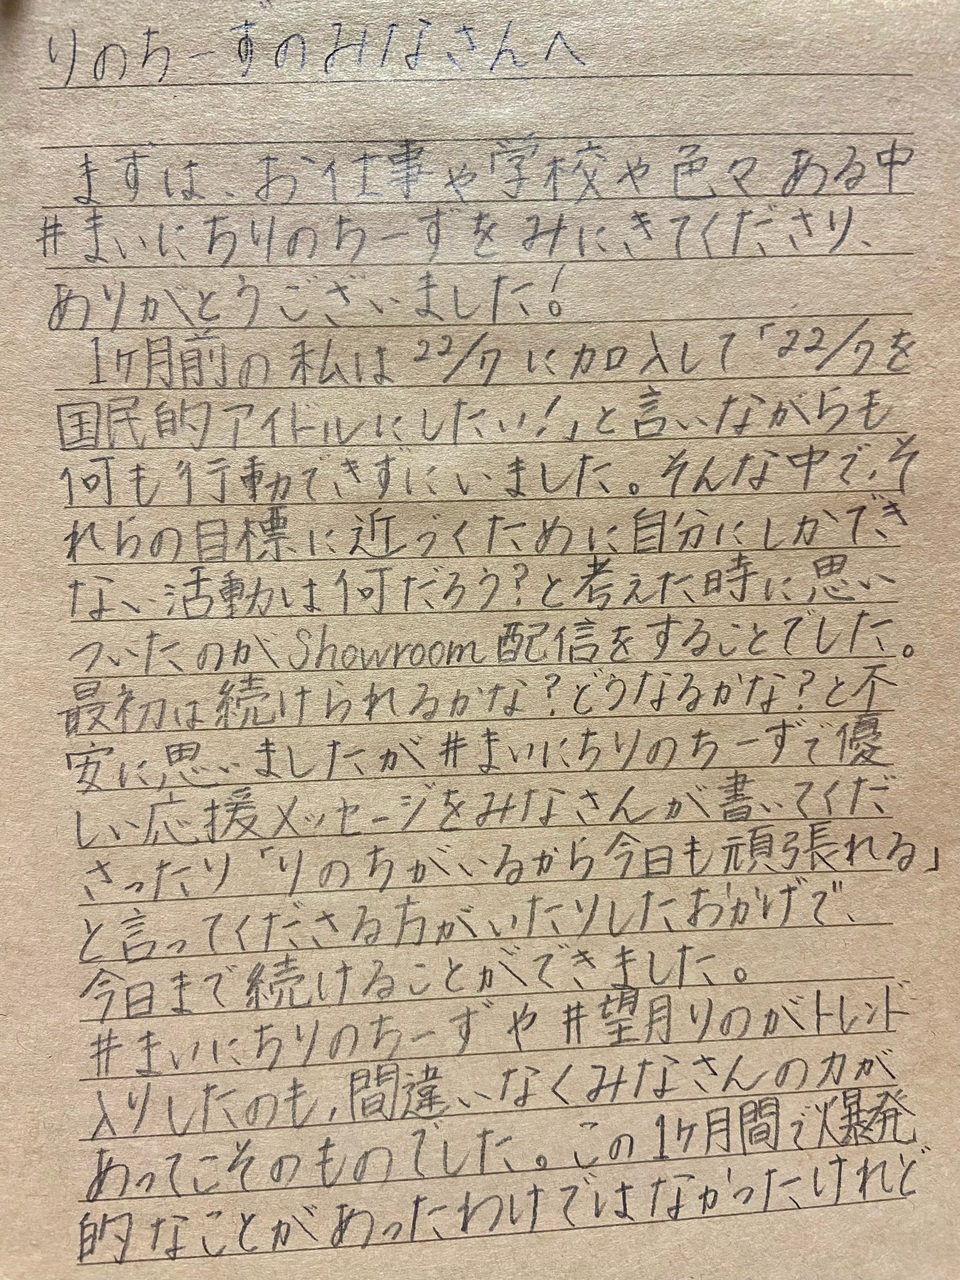 りのちーずのみなさんへ
まずは、お仕事や学校や色々ある中
#まいにちりのちーずをみにきてくださり、
ありがとうございました!
1ヶ月前の私は22/7に加入して「22/7を
国民的アイドルにしたい!」と言いながらも
何も行動できずにいました。そんな中で、そ
れらの目標に近づくために自分にしかでき
ない活動は何だろう?と考えた時に思い
ついたのがShowroom配信をすることでした。
最初は続けられるかな?どうなるかな?と不
安に思いましたが#まいにちりのちーずで優
しい応援メッセージをみなさんが書いてくだ
さったり「りのちがいるから今日も頑張れる」
と言ってくださる方がいたりしたおかげで、
今日まで続けることができました。
#まいにちりのちーずや#望月りのがトレンド
入りしたのも、間違いなくみなさんの力が
あってこそのものでした。この1ヶ月間で爆発
的なことがあったわけではなかったけれど